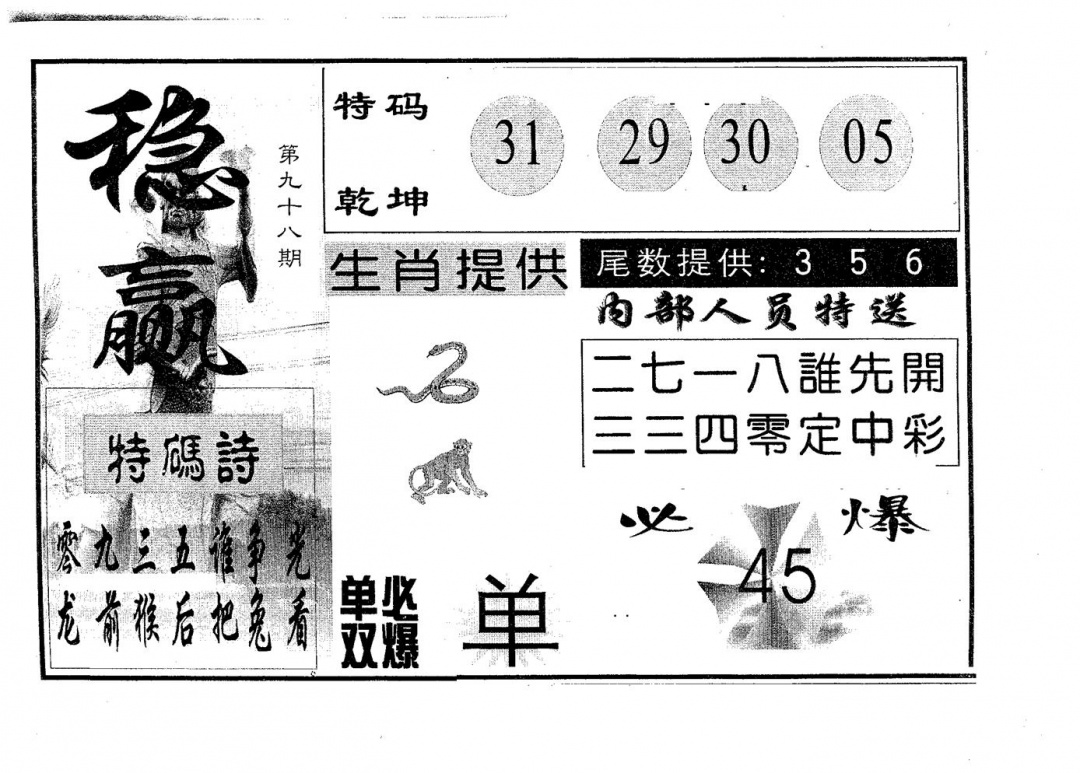 稳赢
第九十八期
特码
乾坤
31 29 30 05
生肖提供
尾数提供: 3 5 6
内部人员特送
二七一八誰先開
三三四零定中彩
特碼詩
零九三五谁争光
龙前猴后把兔看
必爆
45
单双必爆
单